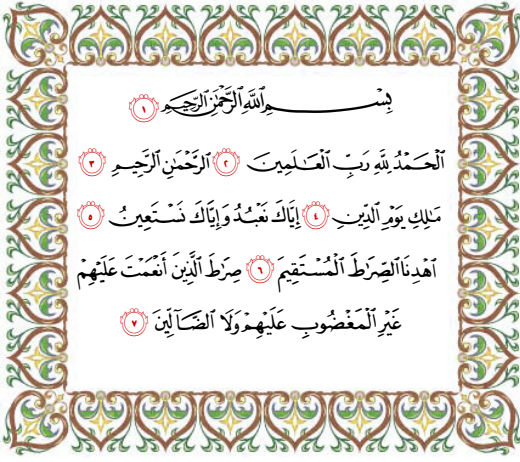 بِسْمِ اللَّهِ الرَّحْمَٰنِ الرَّحِيمِ ١
الْحَمْدُ لِلَّهِ رَبِّ الْعَالَمِينَ ٢ الرَّحْمَٰنِ الرَّحِيمِ ٣
مَالِكِ يَوْمِ الدِّينِ ٤ إِيَّاكَ نَعْبُدُ وَإِيَّاكَ نَسْتَعِينُ ٥
اهْدِنَا الصِّرَاطَ الْمُسْتَقِيمَ ٦ صِرَاطَ الَّذِينَ أَنْعَمْتَ عَلَيْهِمْ
غَيْرِ الْمَغْضُوبِ عَلَيْهِمْ وَلَا الضَّآلِّينَ ٧